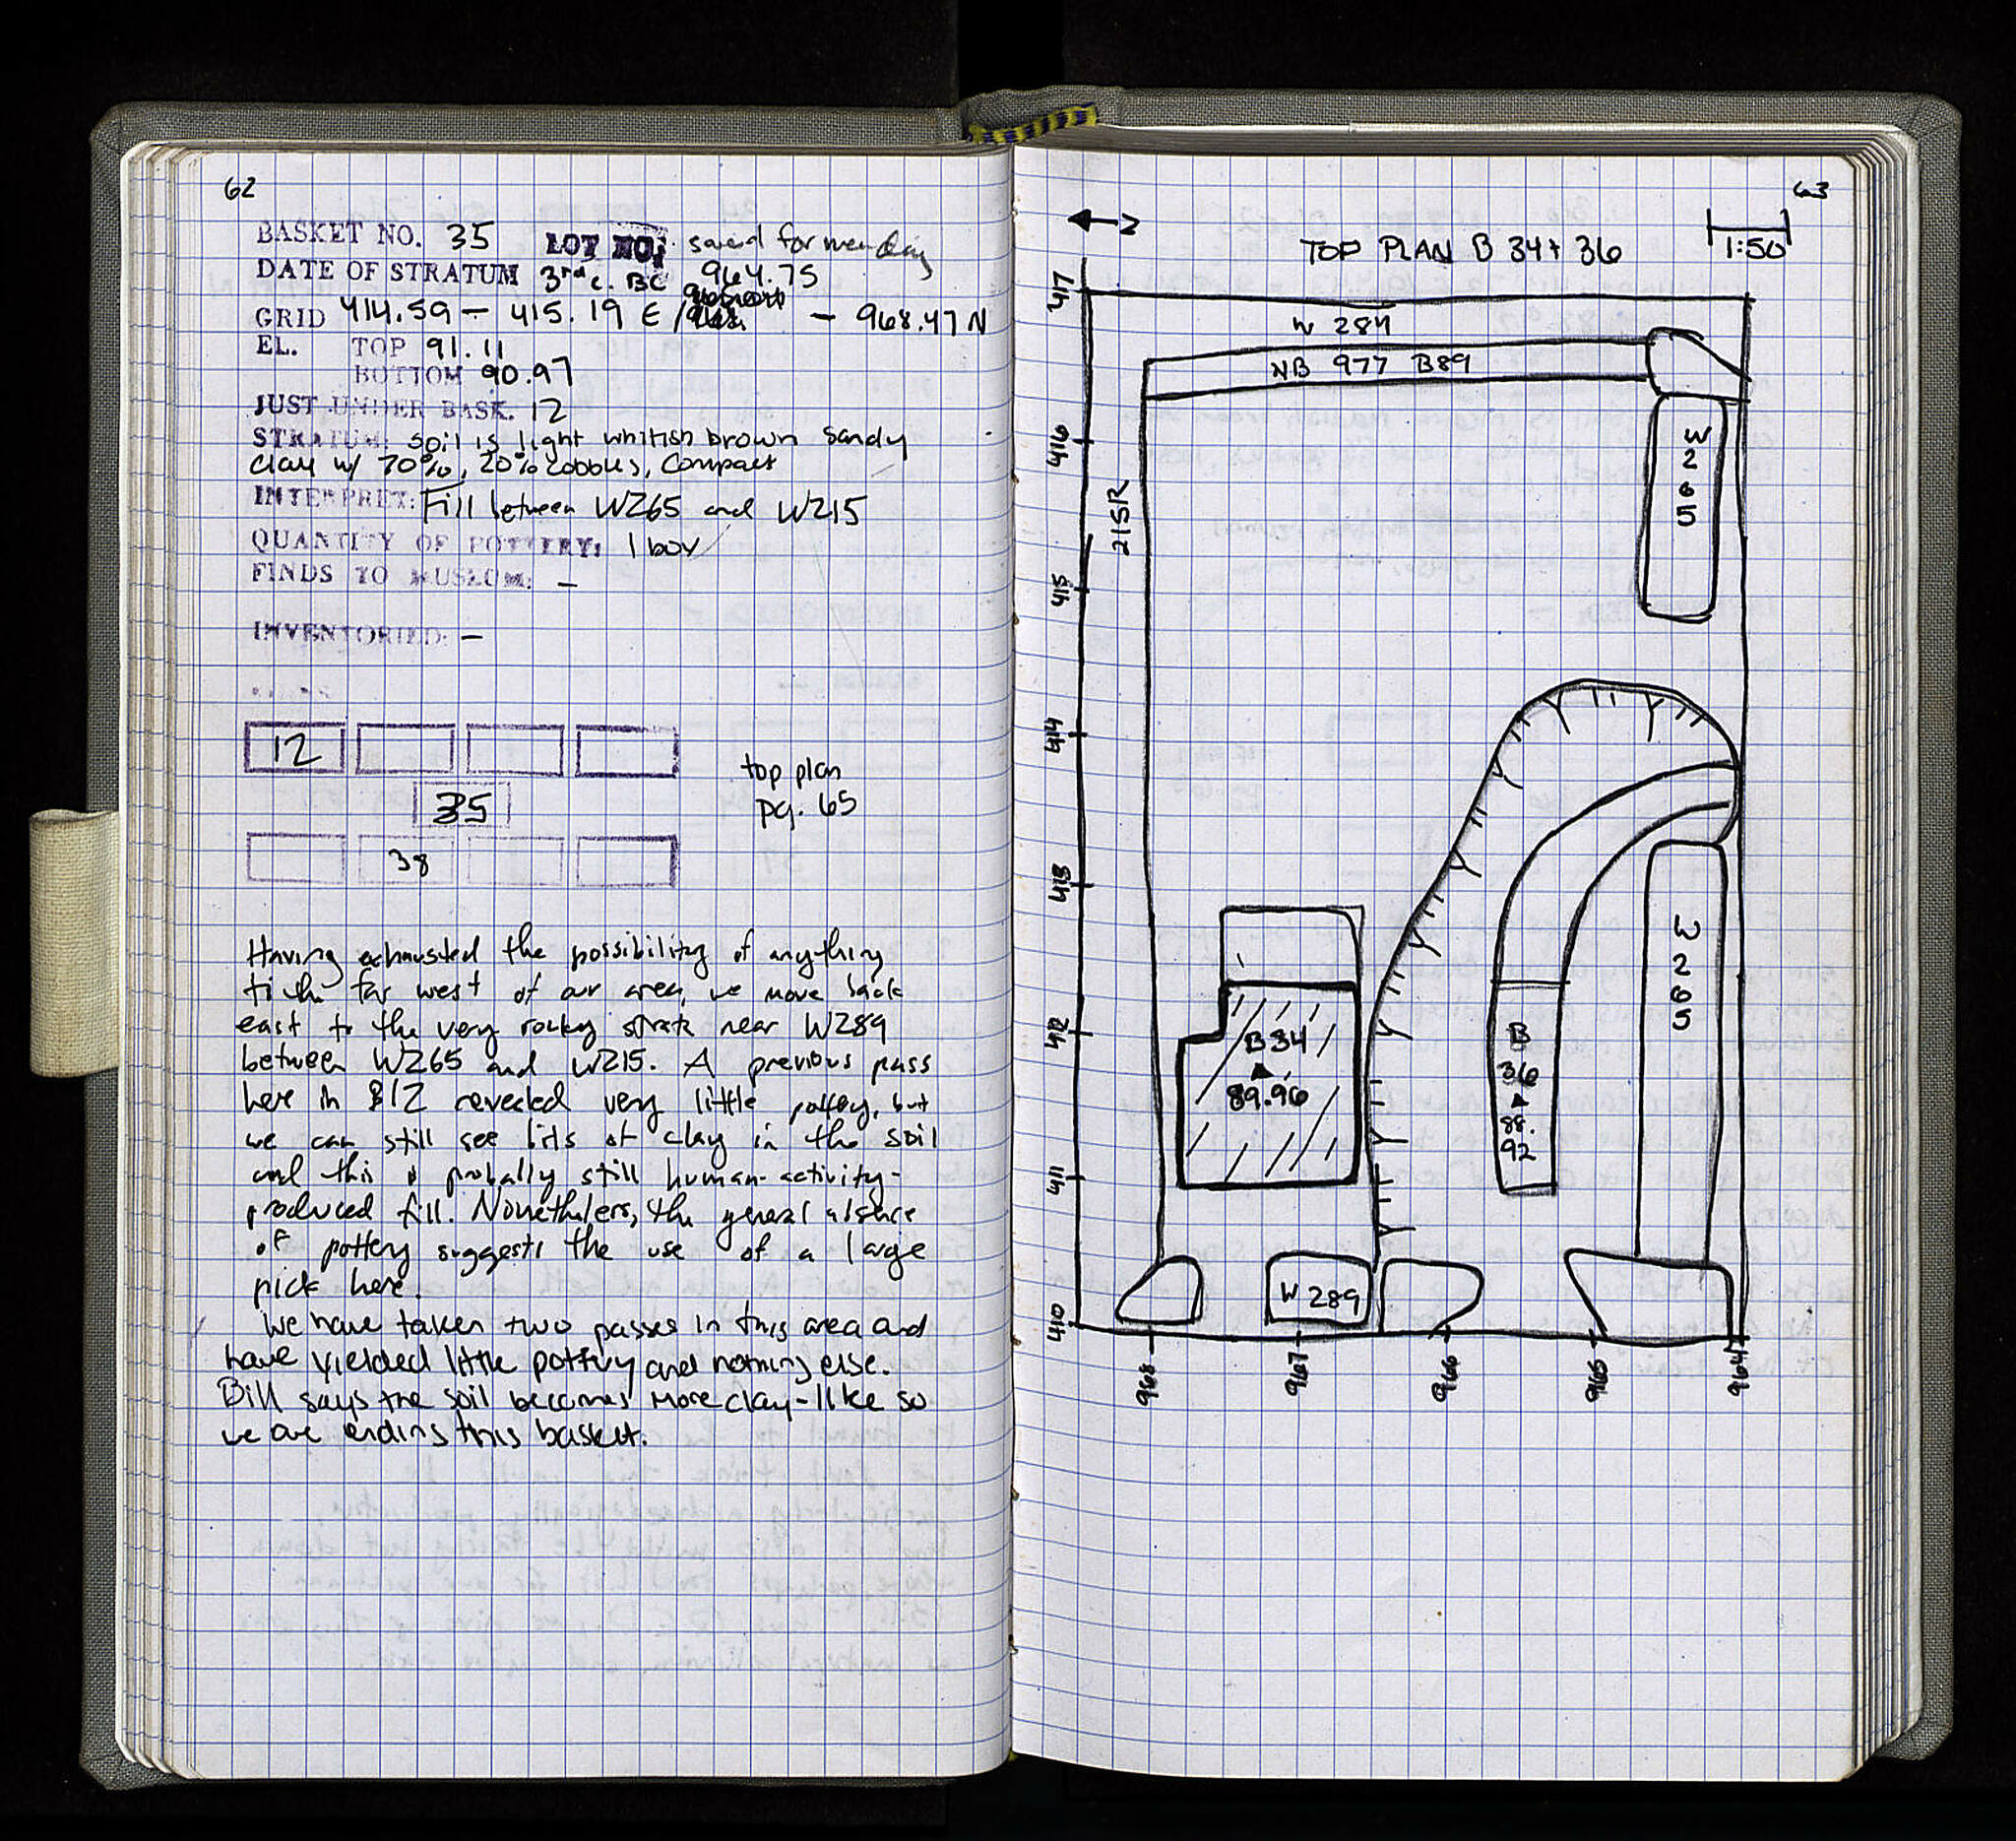 62
BASKET NO. 35 LOT NO. saved for mending
DATE OF STRATUM 3rd c. BC 964.75
GRID 414.59 - 415.19 E / - 968.47 N
EL. TOP 91.11
BOTTOM 90.97
JUST UNDER BASK. 12
STRATUM: soil is light whitish brown sandy
clay w/ 70%, 20% cobbles, compact
INTERPRET: Fill between W265 and W215
QUANTITY OF POTTERY: 1 box
FINDS TO MUSEUM: -
INVENTORIED: -
12
35
38
top plan
pg. 65
Having exhausted the possibility of anything
far west of our area, we move back
east to the very rocky strata near W289
between W265 and W215. A previous pass
here in B12 revealed very little pottery, but
we can still see bits of clay in the soil
and this is probably still human-activity-
produced fill. Nonetheless, the general absence
of pottery suggests the use of a large
pick here.
We have taken two passes in this area and
have yielded little pottery and nothing else.
Bill says the soil becomes more clay-like so
we are ending this basket.
63
N
TOP PLAN B 34 + 36
1:50
417
W 284
NB 977 B89
416
W
2
6
5
215R
415
414
413
W
2
6
5
412
B 34
89.96
B
36
88.
92
411
W 289
410
968
967
966
965
964